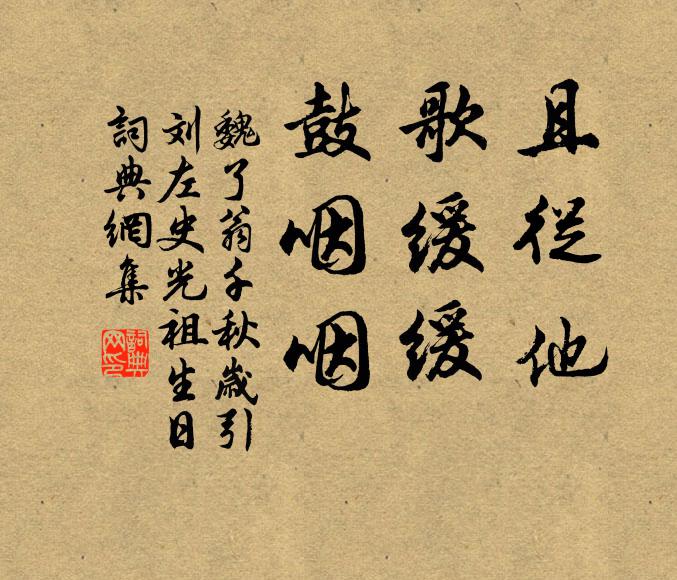 且從他
歌緩緩
鼓咽咽
魏了翁千秋歲引
刘左史光祖生日
詞典網集
詞典
网印